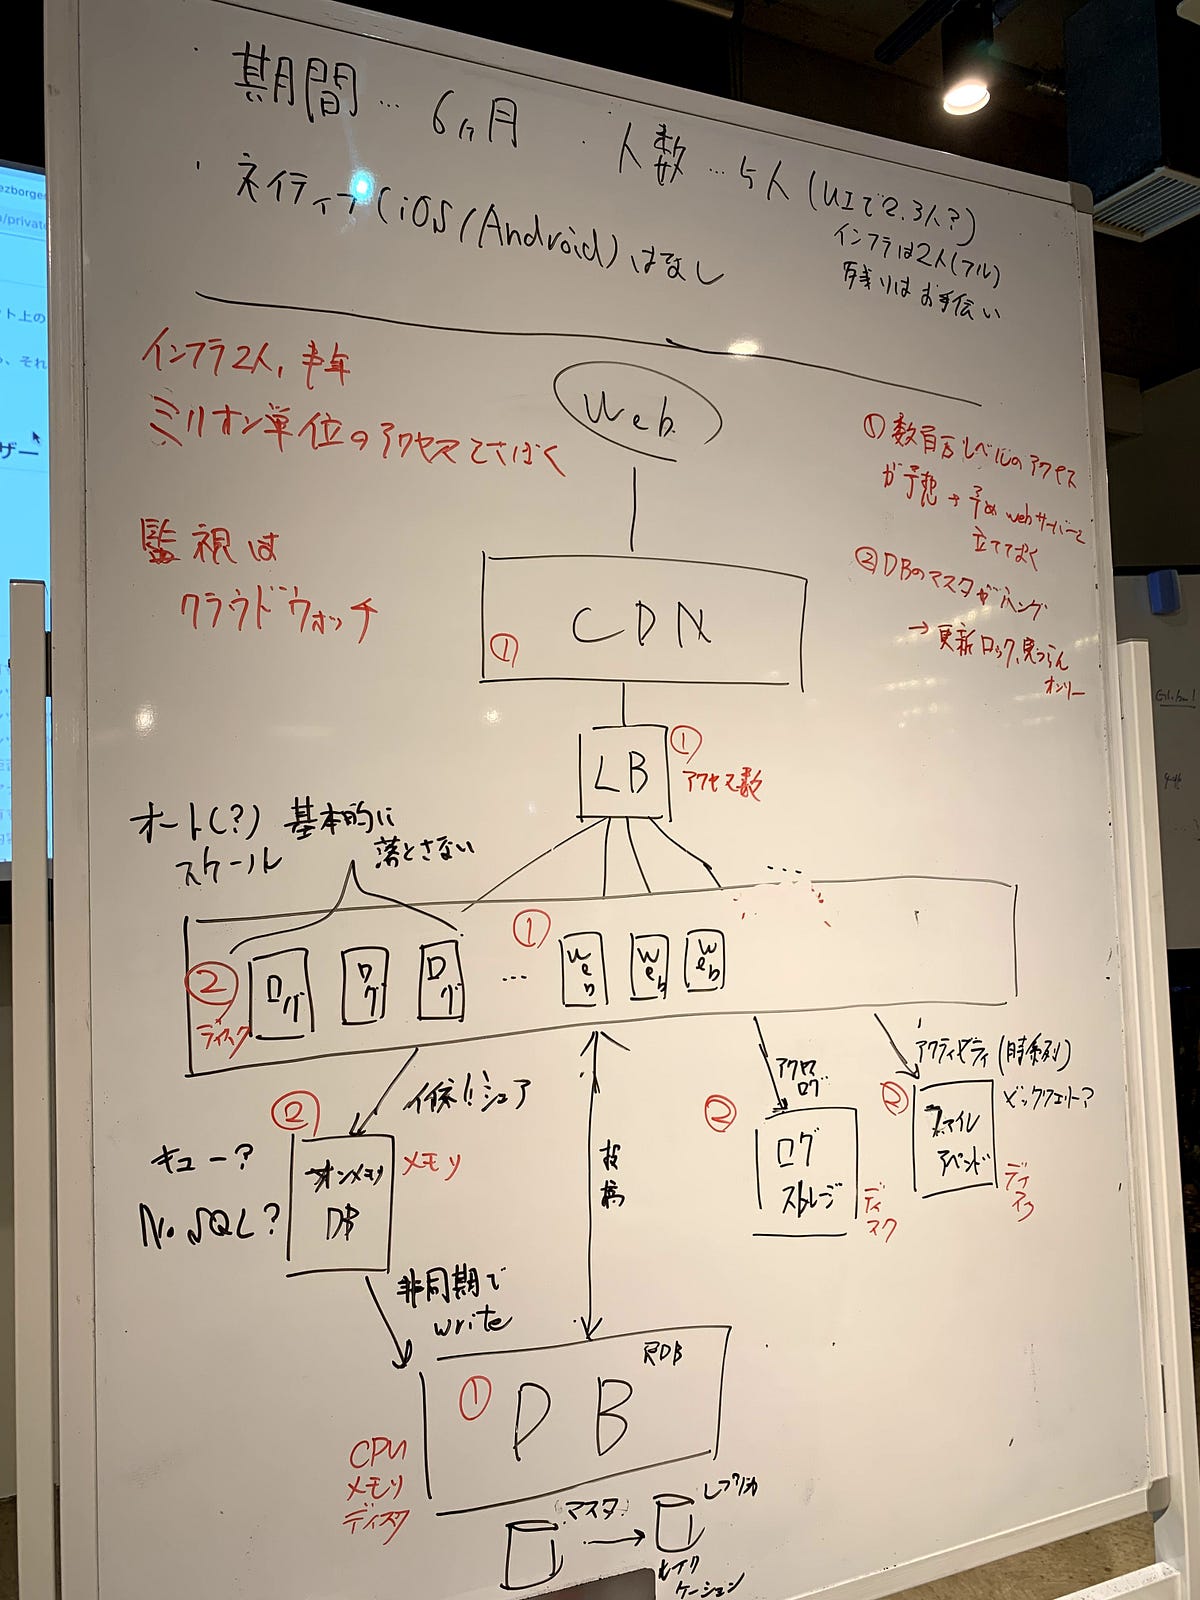 期間… 6ヶ月
・人数…5人(UIで2.3人?)
インフラは2人(フル)
残りはお手伝い
・ネイティブ(iOS/Android)はなし
インフラ2人, 半年
ミリオン単位のアクセスをさばく
監視は
クラウドウォッチ
Web
①数百万レベルのアクセス
が予想→予めwebサーバーを
立てておく
②DBのマスタがハング
→更新ロック、見つらん
オンリー
CDN
①
LB
①
アクセス数
オート(?)
スケール
基本的に
落とさない
②
ディスク
ログ
ログ
ログ
…
①
Web
Web
Web
シェア
②
キュー?
NoSQL?
オンメモリ
DB
メモリ
非同期で
write
投稿
アクセス
ログ
②
ログ
ストレージ
ディスク
アクティビティ(時系列)
②
ファイル
アペンド
ディスク
RDB
①
DB
CPU
メモリ
ディスク
マスタ
レプリカ
ケーション